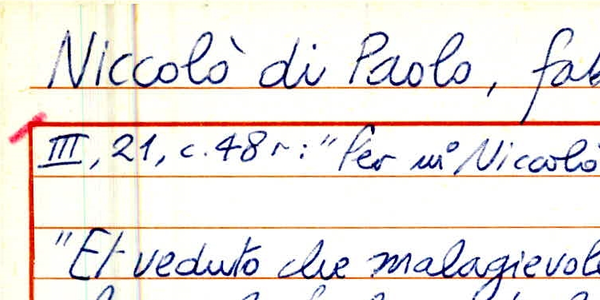 Niccolò di Paolo, fab
III, 21, c. 48 r: "Per m° Niccolò
"Et veduto che malagievole